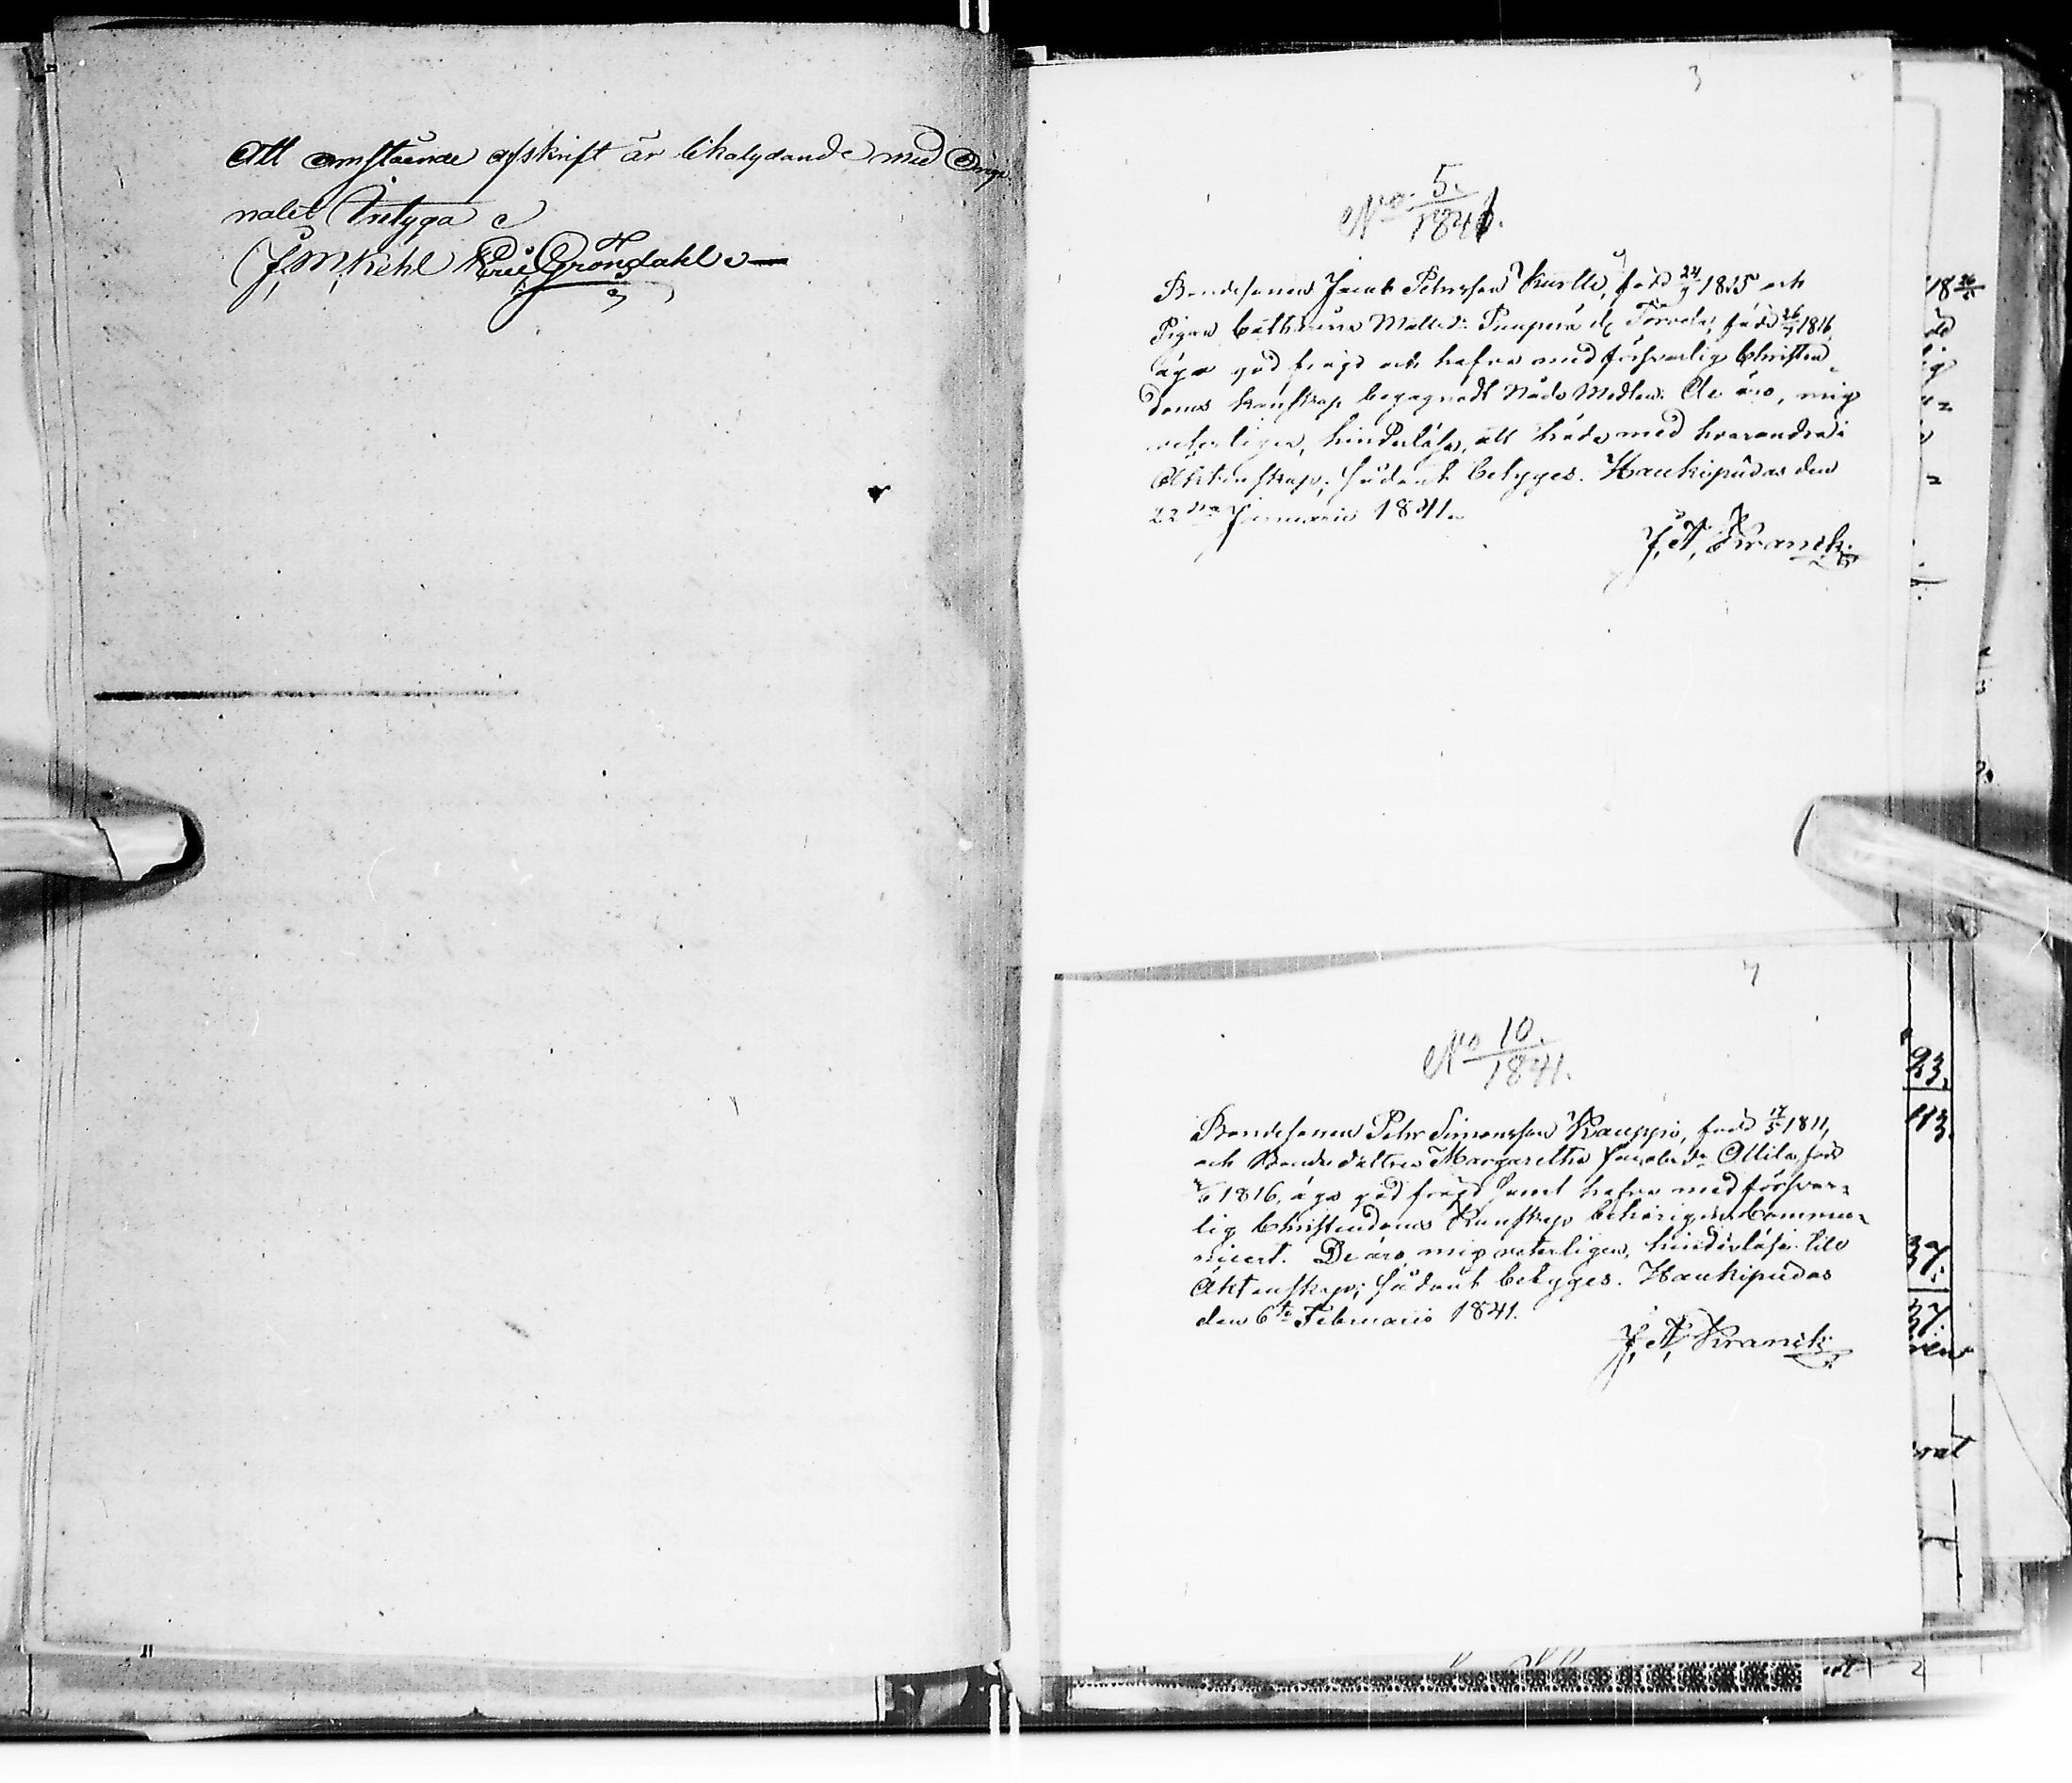 Att omstående afskrift är likalydande med Origi
nalet Intyga
J, M, Kehl Eric Gröndahl
3
No. 5.
1841.
Bondesonen Jacob Pehrsson Kurtti, född 24/7 1815 och
Pigan Catharina Mattsdr Tuupura l. Törrole, född 26/7 1816,
äga god frägd och hafva med försvarlig Christen-
doms kunskap begagnadt Nåde Medlen. De äro, mig
veterligen, hinderlösa, att träda med hvarandra i
Äktenskap; sådant betygas. Haukipudas den
22dra Januarii 1841.
J, A, Kranck.
4
No 10.
1841.
Bondesonen Pehr Simonsson Kauppi, född 17/5 1811,
och Bondedottren Margaretha Jacobsdr Ollila, född
1816, äga god frägd samt hafva med försvar-
lig Christendoms Kunskap behörigen commu-
nicert. De äro, mig veterligen, hinderlösa till
Äktenskap; sådant betygas. Haukipudas
den 6te Februarii 1841.
J, A, Kranck.
18 26/5
23.
113.
37.
37.